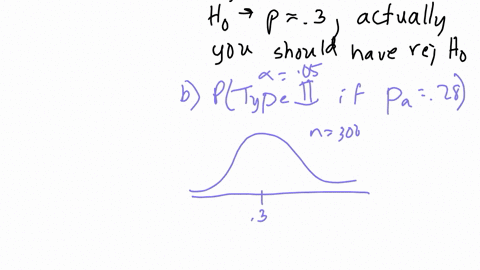 H₀ → p = .3, actually
you should have rej H₀
α = .05
b) P(Type II if pₐ = .28)
n = 300
.3